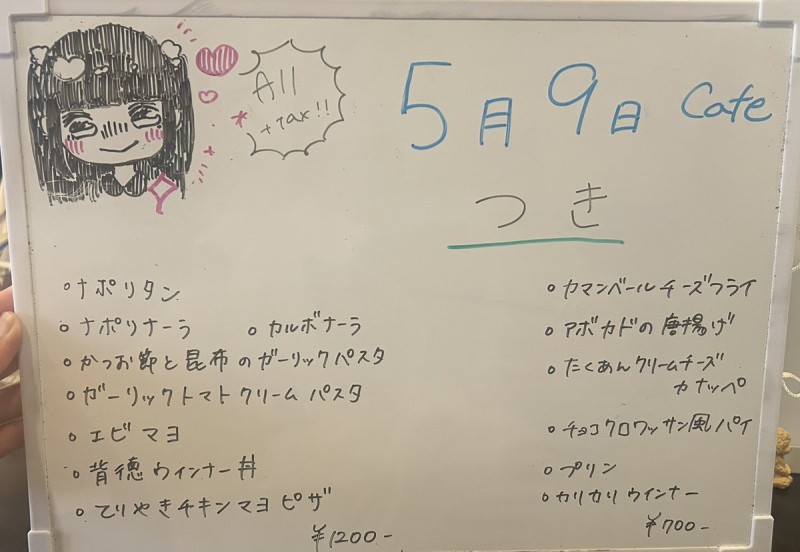 All
+Tax!!
5月9日 Cafe
つき
◦ナポリタン
◦ナポリナーラ ◦カルボナーラ
◦かつお節と昆布のガーリックパスタ
◦ガーリックトマトクリームパスタ
◦エビマヨ
◦背徳ウインナー丼
◦てりやきチキンマヨピザ
¥1200-
◦カマンベールチーズフライ
◦アボカドの唐揚げ
◦たくあんクリームチーズ
カナッペ
◦チョコクロワッサン風パイ
◦プリン
◦カリカリウインナー
¥700-